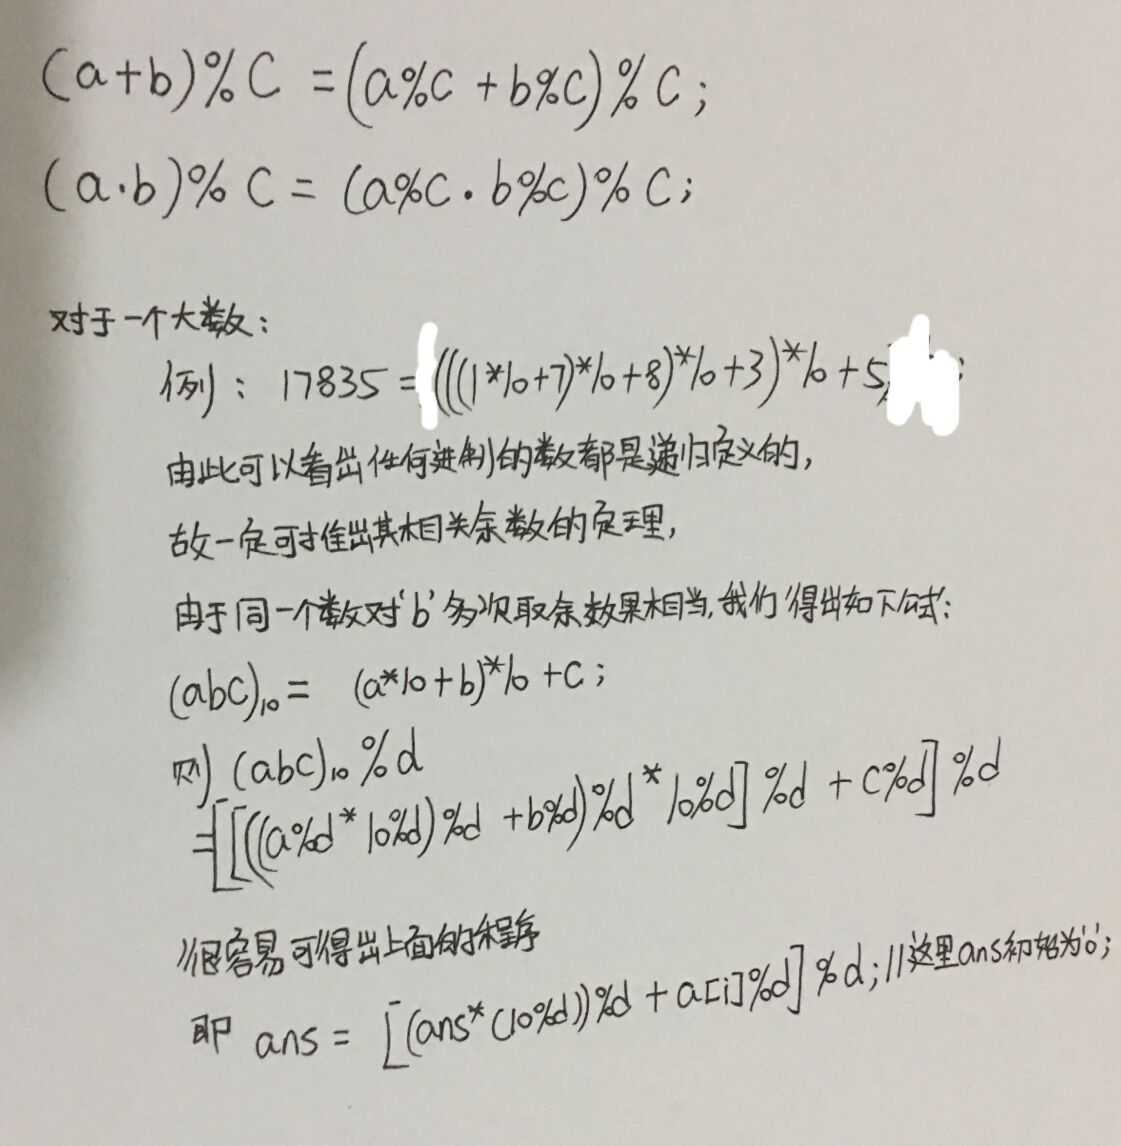 (a+b)%C = (a%C + b%C)%C;
(a·b)%C = (a%C · b%C)%C;
对于一个大数:
例: 17835 = (((1*10+7)*10+8)*10+3)*10+5
由此可以看出任何进制的数都是递归定义的,
故一定可推出其相关余数的定理,
由于同一个数对'b'多次取余数果相当,我们得出如下公式:
(abc)₁₀ = (a*10+b)*10+C;
则 (abc)₁₀%d
=[[((a%d*10%d)%d +b%d)%d*10%d]%d + C%d]%d
//很容易可得出上面的程序
即 ans = [(ans*(10%d))%d + a[i]%d]%d;//这里ans初始为'0';